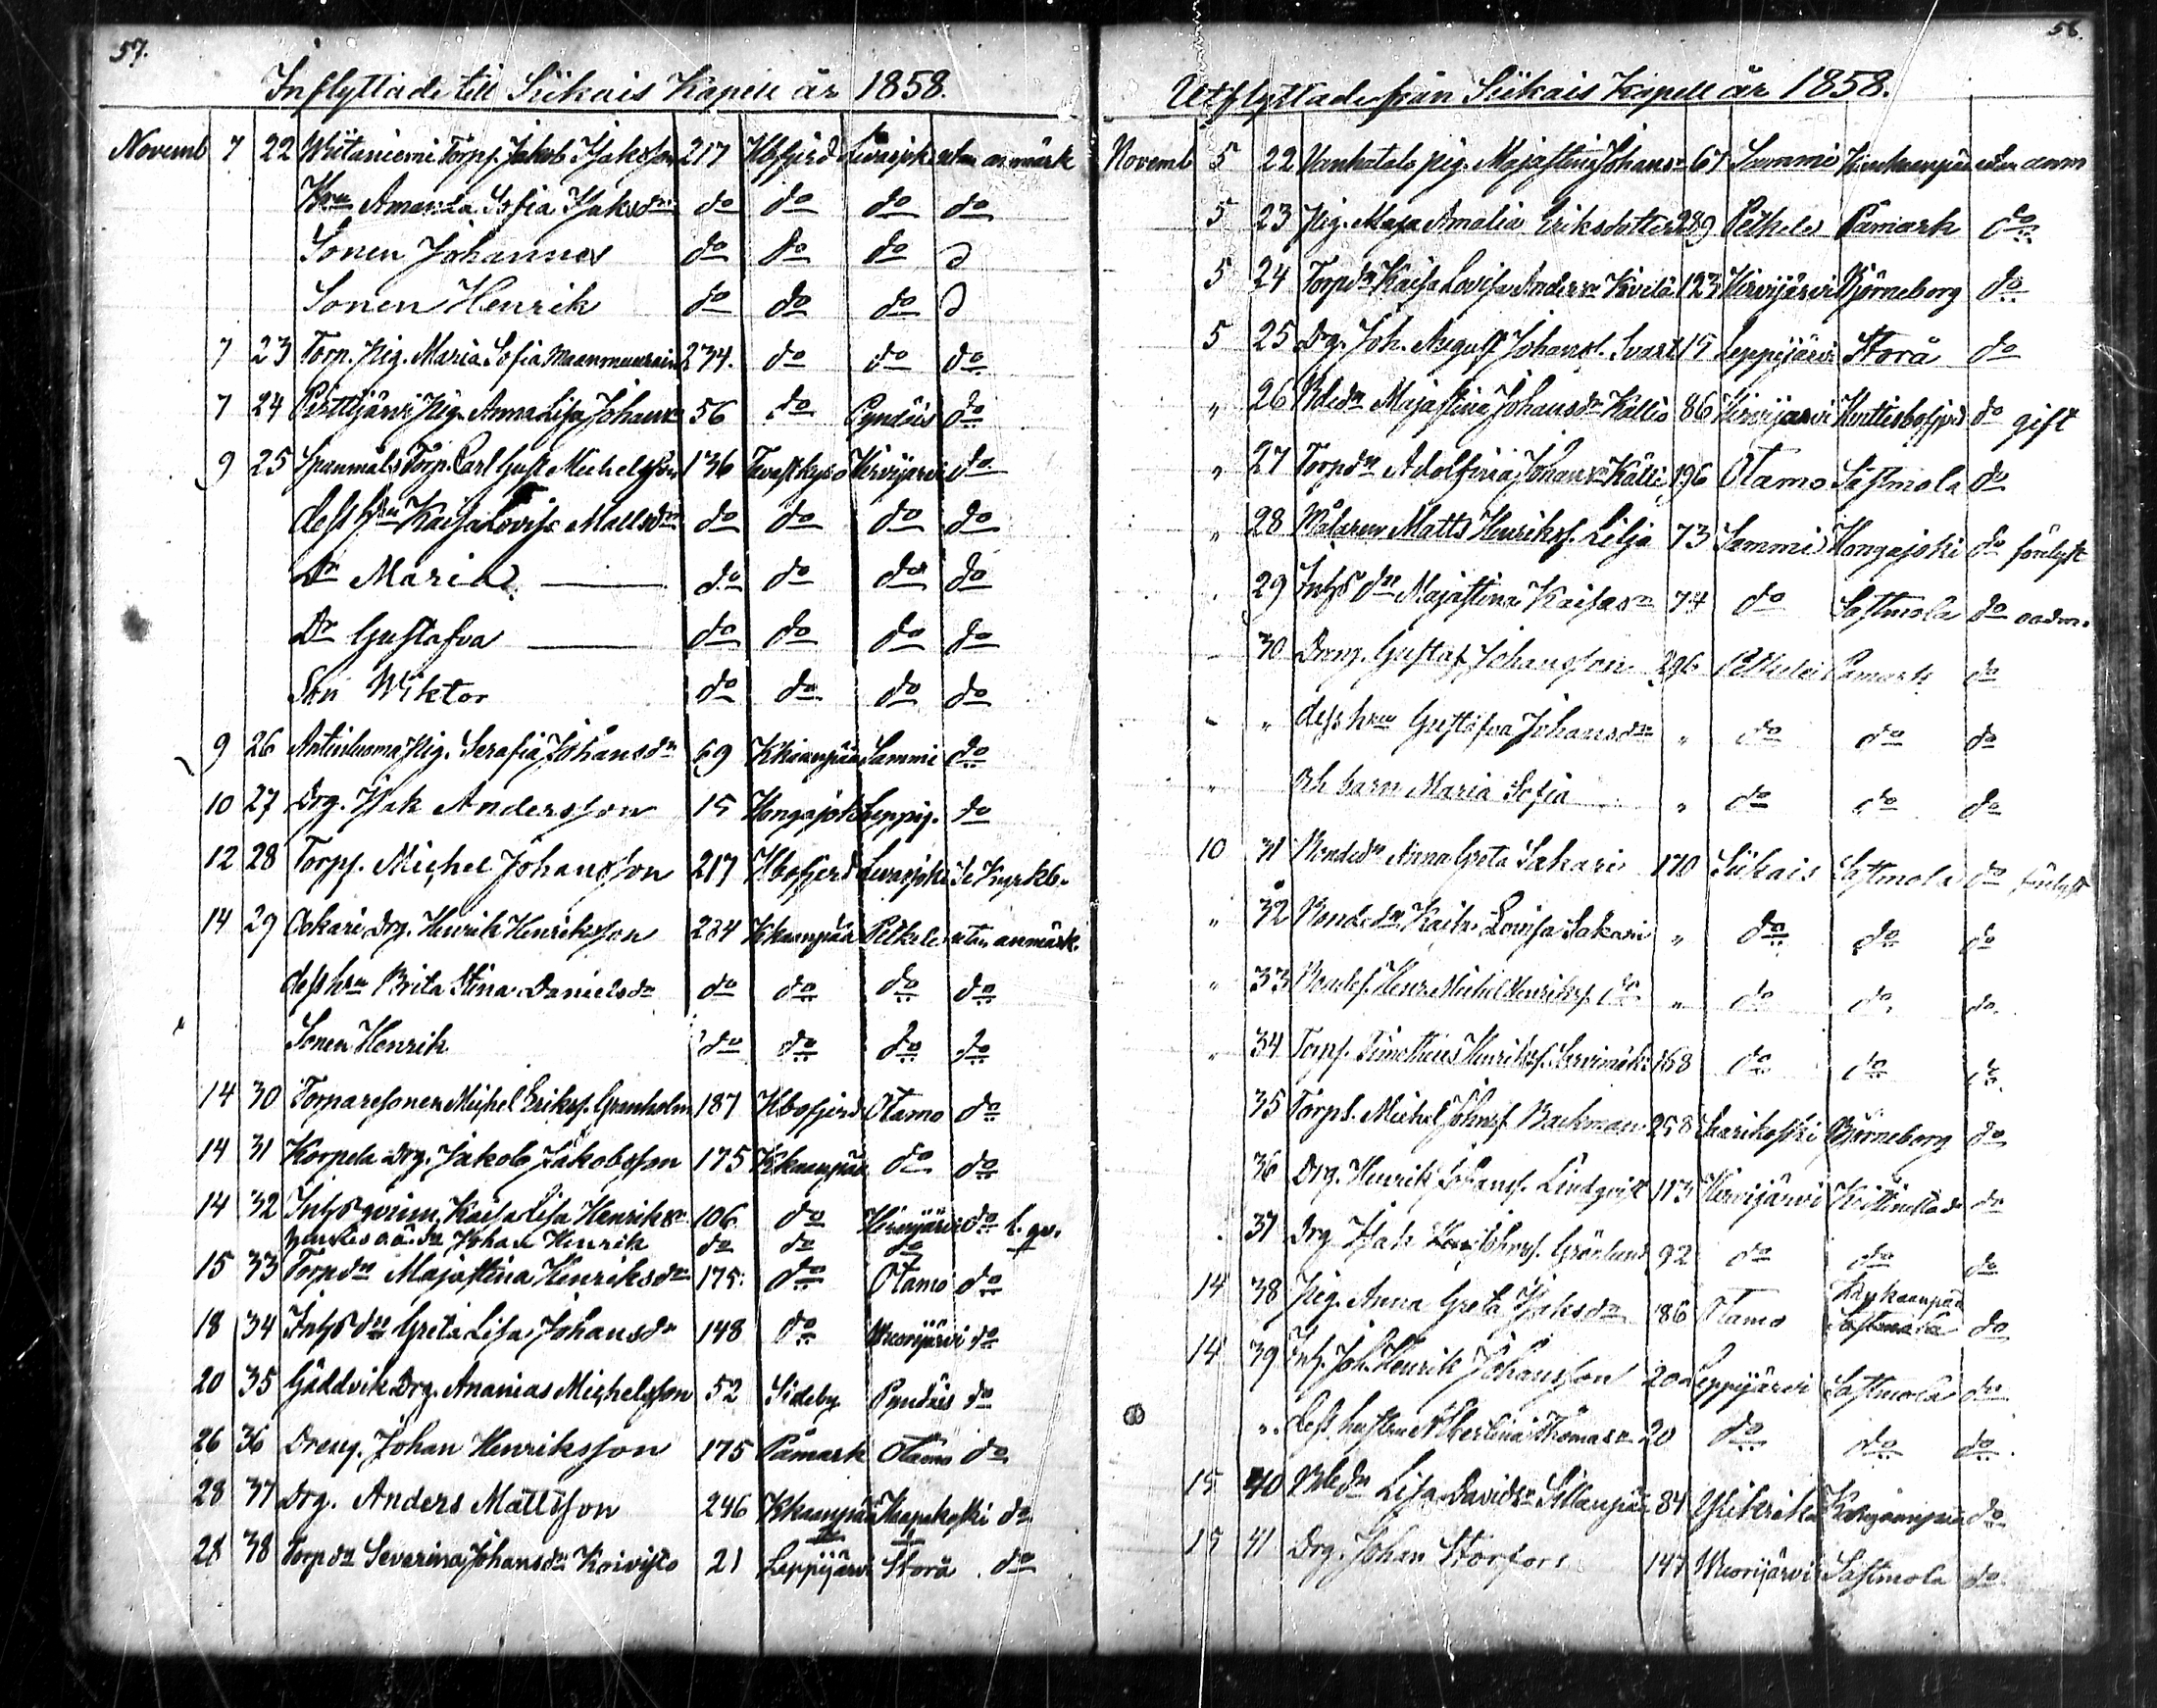 57.
Inflyttade till Siikais Kapell år 1858.
Novemb 7 22 Wiitaniemi Torp. Jakob Isaksson 217 Kbofjerd utan anmärk
Hru Amanda Sofia Isaksdr do do do do
Sonen Johannes do do do d
Sonen Henrik do do do d
7 23 Torp. Pig. Maria Sofia 234. do do do
7 24 Perttijärvi Pig. Anna Lisa Johansdr 56 do Pyndöis do
9 25 Torp. Carl Gust Michelsson 136 Tavastkyro Hirvijärvi do
dess Hru Kaisa Lovisa Mattsdr do do do do
Dr Maria do do do do
Dr Gustafva do do do do
Son Wiktor do do do do
9 26 Pig. Serafia Johansdr 69 Kkaanpää Sammi do
10 27 Drg. Isak Andersson 15 Hongajoki Leppij. do
12 28 Torpf. Michel Johansson 217 Kbofjerd Se Kyrkb.
14 29 Oskari Drg. Henrik Henriksson 284 Kkaanpää Petkele utan anmärk.
dess hru Brita Stina Danielsdr do do do do
Sonen Henrik do do do do
14 30 Torparesonen Michel Eriksf. Granholm 187 Kbofjerd Otamo do
14 31 Korpela Drg. Jakob Jakobsson 175 Kkaanpää do do
14 32 Inhys qvinn. Kaisa Lisa Henriksdr 106 do Hirvijärvi do
Johan Henrik do do do
15 33 Torpdr Majastina Henriksdr 175. do Otamo do
18 34 Inhysdr Greta Lisa Johansdr 148 do Wuorijärvi do
20 35 Gäddvik Drg. Ananias Michelsson 52 Sideby Pyndöis do
26 36 Dreng. Johan Henriksson 175 Påmark Otamo do
28 37 Drg. Anders Mattsson 246 Kkaanpää do
28 38 Torpdr Severina Johansdr Koivisto 21 Leppijärvi Storå do
58.
Utflyttade från Siikais Kapell år 1858.
Novemb 5 22 Vanhatalo pig. Majastina Johansdr 67 Sammi utan anm
5 23 Pig. Maja Amalia Eriksdotter 289 Petkele Påmark do
5 24 Torpdr Kaisa Lovisa Andersdr Kivelä 123 Hirvijärvi Björneborg do
5 25 Drg. Joh. August Johansf. Svart 19 Leppijärvi Storå do
" 26 Bdedr Majastina Johansdr Kallio 86 Hirvijärvi do gift
" 27 Torpdr Adolfina Johansdr Källi 196 Otamo Sastmola do
" 28 Målaren Matts Henriksf. Lilja 73 Sammi Hongajoki do
29 Inhysdr Majastina Kaisasdr 74 do Sastmola do
30 Dreng. Gustaf Johansson 296 Petkele Pamark do
" dess hru Gustafva Johansdr " do do do
" oh barn Maria Sofia " do do do
10 31 Bondedr Anna Greta Sakari 170 Siikais Sastmola do
" 32 Bondedr Kaisa Lovisa Sakari " do do do
" 33 Bondef. Henr. Michel Henriksf. do " do do do
" 34 Torpf. Timotheus Henriksf. 168 do do do
35 Torpf. Michel Johansf. Backman 258 Björneborg do
36 Drg. Henrik Johansf. Lindqvist 113 Hirvijärvi do
37 Drg Isak Grönlund 92 do do do
14 38 Pig. Anna Greta Isaksdr 186 Otamo Kankaanpää Sastmola do
14 39 Inh. Joh. Henrik Johansson 20 Leppijärvi Sastmola do
" Dess hustru Albertina Thomasdr 20 do do do
15 40 Bdedr Lisa Davidsdr Sillanpää 84 Kankaanpää do
15 41 Drg. Johan Storfors 147 Wuorijärvi Sastmola do